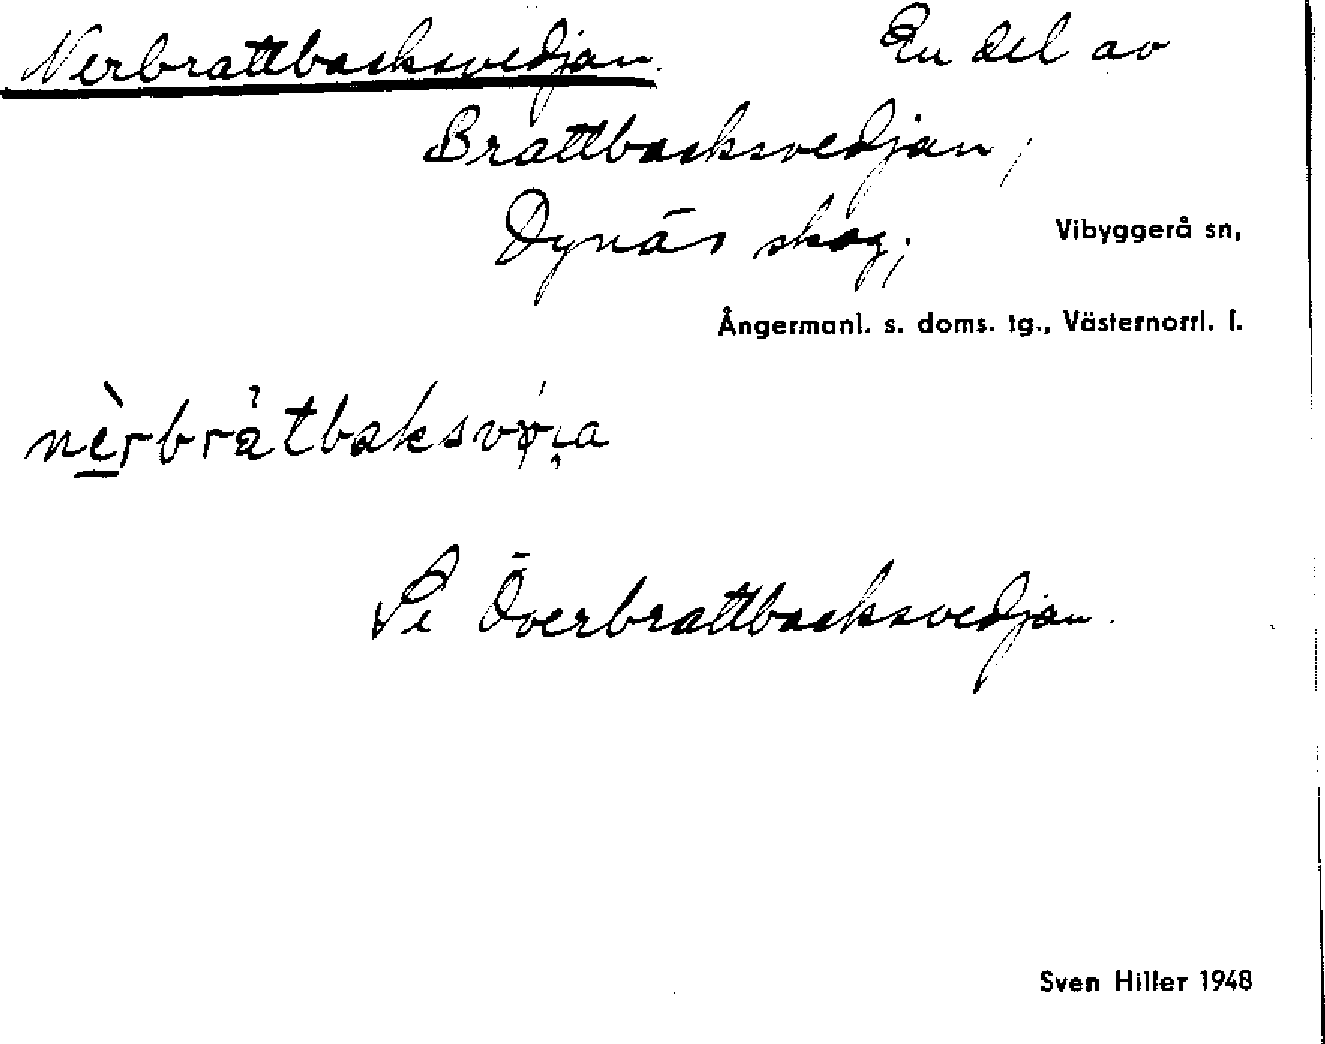 Nerbrattbacksvedjan. En del av
Brattbacksvedjan,
Dynäs skog; Vibyggerå sn,
Ångermanl. s. doms. tg., Västernorrl. l.
Se Överbrattbacksvedjan.
Sven Hiller 1948